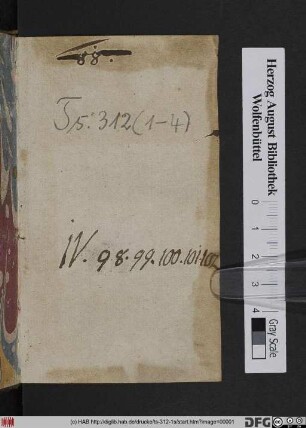 88.
Ts: 312 (1-4)
IV. 98. 99. 100. 101. 102
Herzog August Bibliothek
Wolfenbüttel
0
1
2
3
4
Gray Scale
(c) HAB http://diglib.hab.de/drucke/ts-312-1s/start.htm?image=00001
DFG